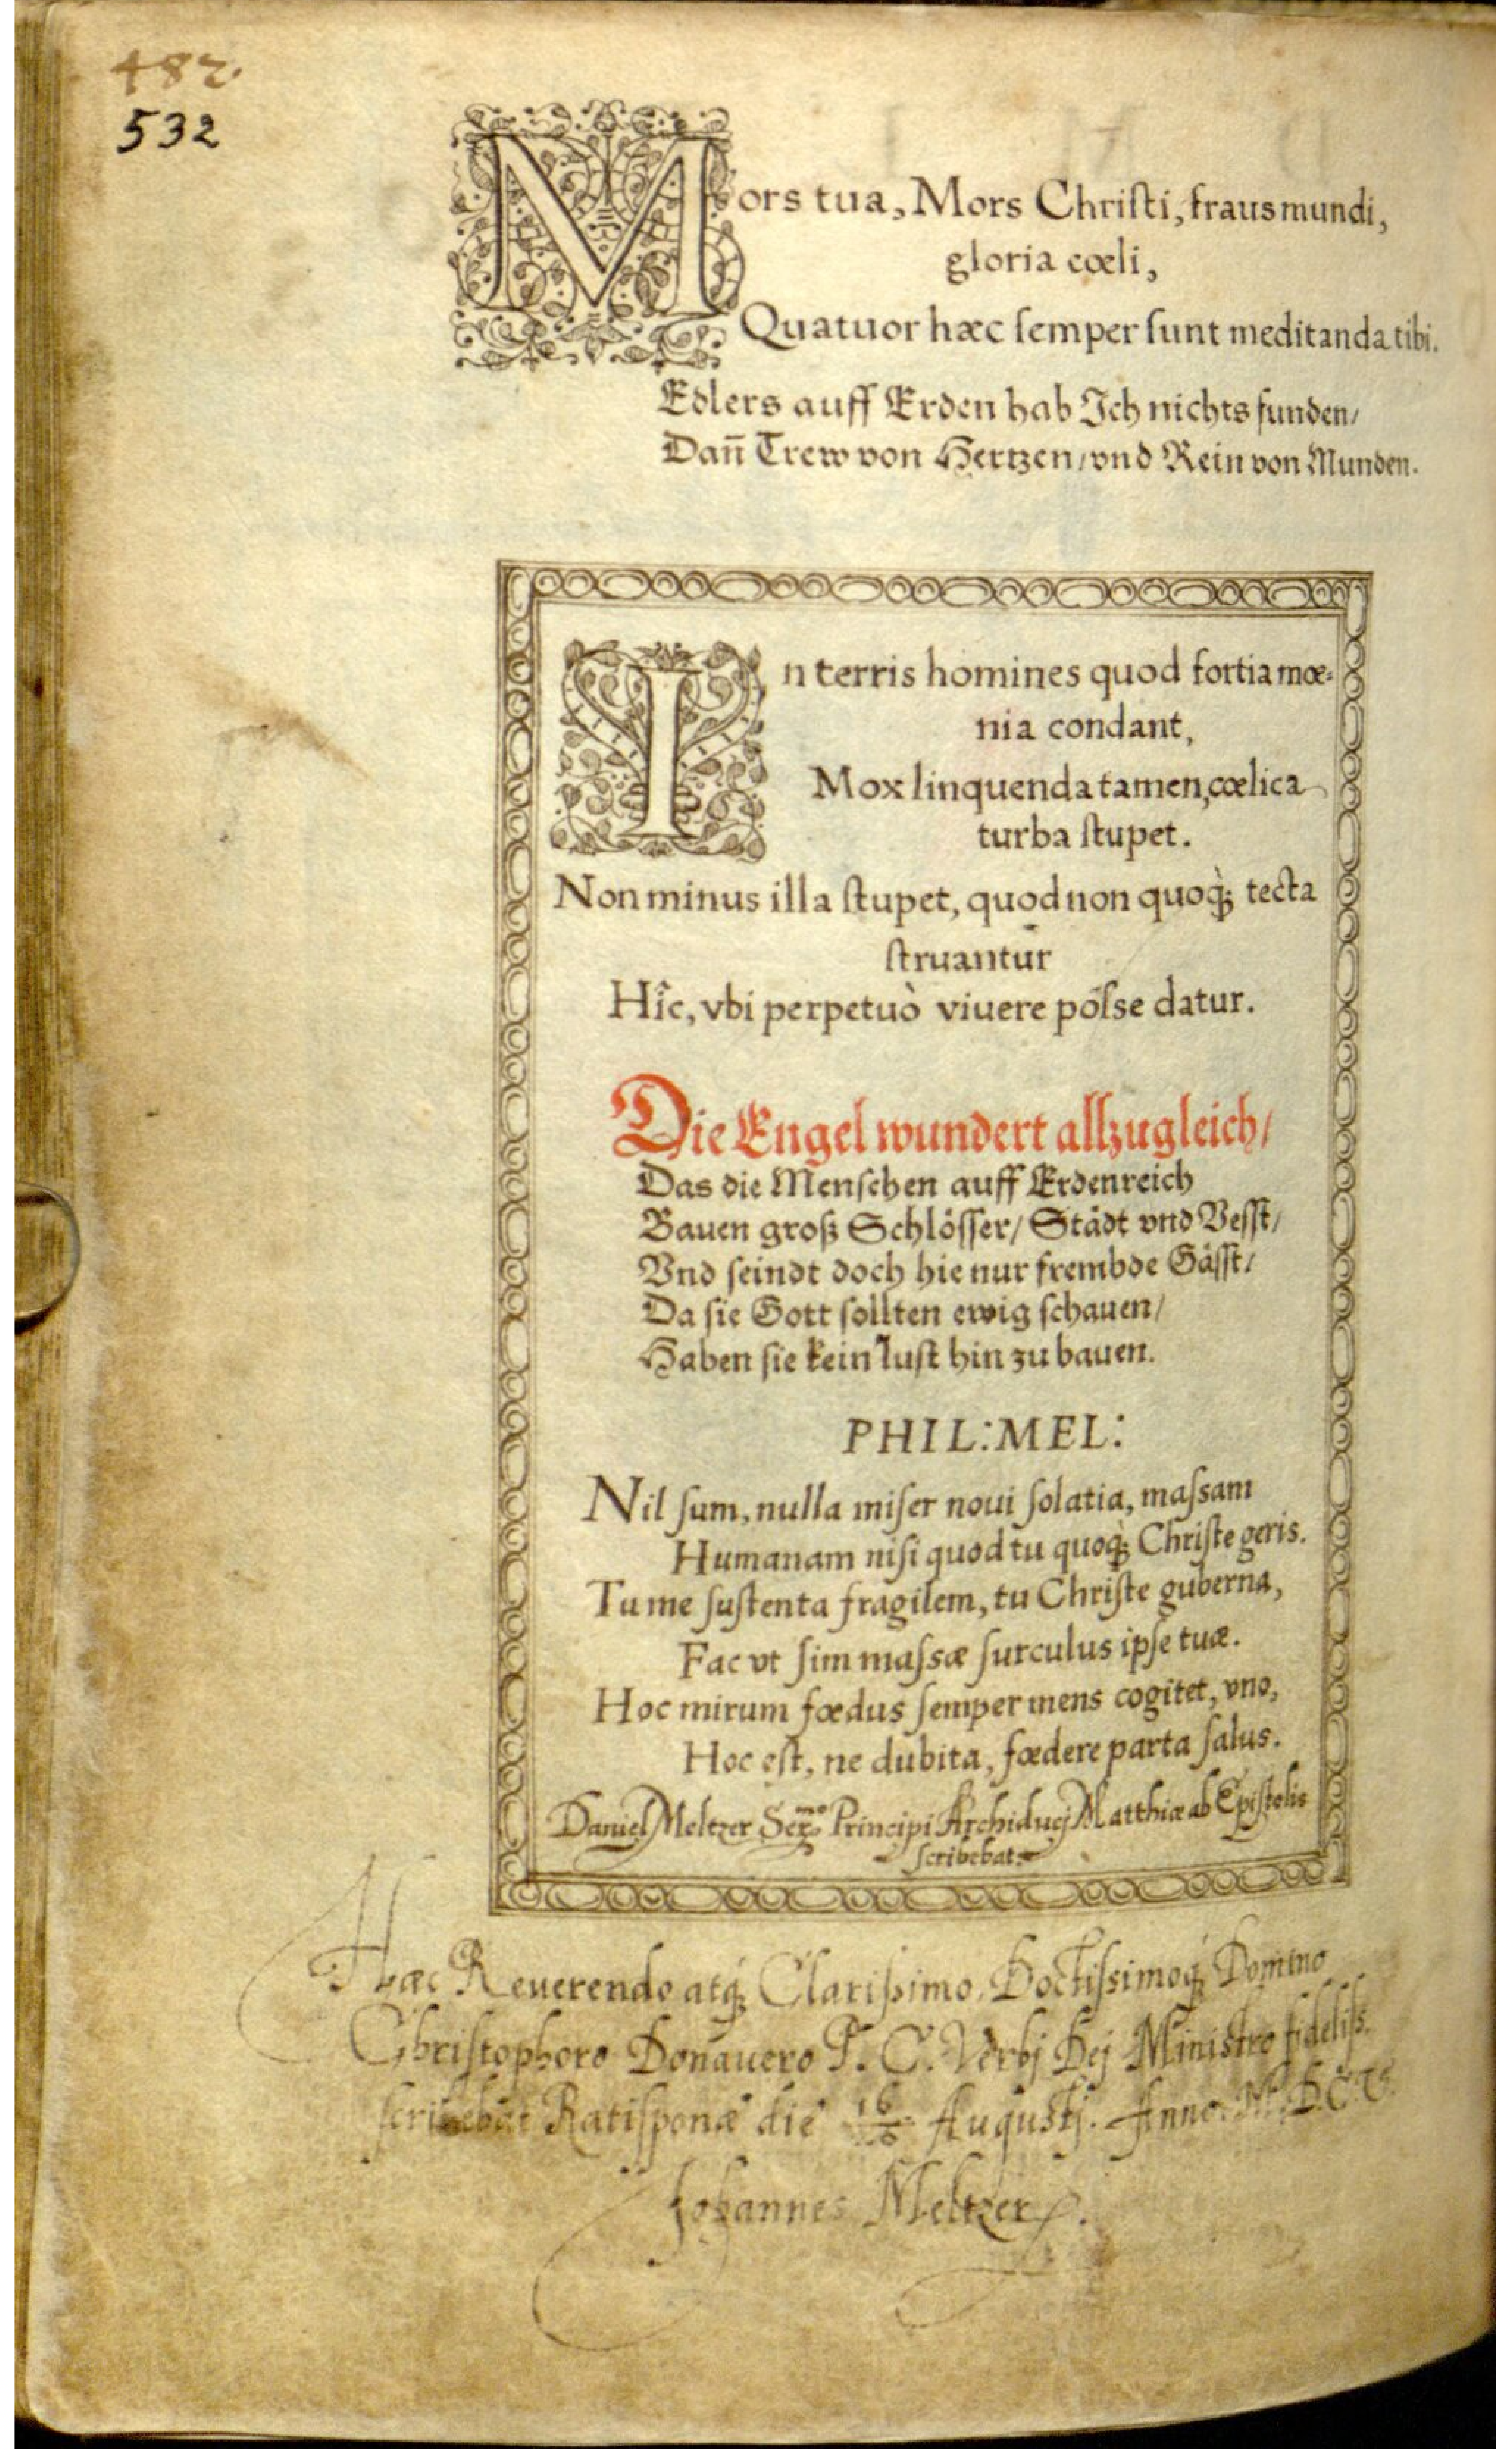 482.
532
Mors tua, Mors Chriſti, fraus mundi,
gloria cœli,
Quatuor hæc ſemper ſunt meditanda tibi.
Edlers auff Erden hab Ich nichts funden/
Dañ Trew von Hertzen/vnd Rein von Munden.
In terris homines quod fortia mœ-
nia condant,
Mox linquenda tamen, cœlica
turba ſtupet.
Non minus illa ſtupet, quod non quoq́; tecta
ſtruantur
Hîc, vbi perpetuò viuere poſse datur.
Die Engel wundert allzugleich/
Das die Menſchen auff Erdenreich
Bauen groß Schlöſſer/ Städt vnd Veſſt/
Vnd ſeindt doch hie nur frembde Gäſſt/
Da ſie Gott ſollten ewig ſchauen/
Haben ſie kein luſt hin zu bauen.
PHIL: MEL:
Nil ſum, nulla miſer noui ſolatia, maſsam
Humanam niſi quod tu quoq́; Chriſte geris.
Tu me ſuſtenta fragilem, tu Chriſte guberna,
Fac vt ſim maſsæ ſurculus ipſe tuæ.
Hoc mirum fœdus ſemper mens cogitet, vno,
Hoc eſt, ne dubita, fœdere parta ſalus.
Daniel Meltzer Ser.mo Principi Archiducj Matthiæ ab Epiſtolis
ſcribebat.
Hæc Reuerendo atq́; Clariſsimo, Doctiſsimoq́; Domino
Chriſtophoro Donauero P. C. Verbj Dej Ministro fideliſs.
ſcribebat Ratiſponæ die 16/6 Augustj. Anno. M.D.C.
Johannes Meltzer.